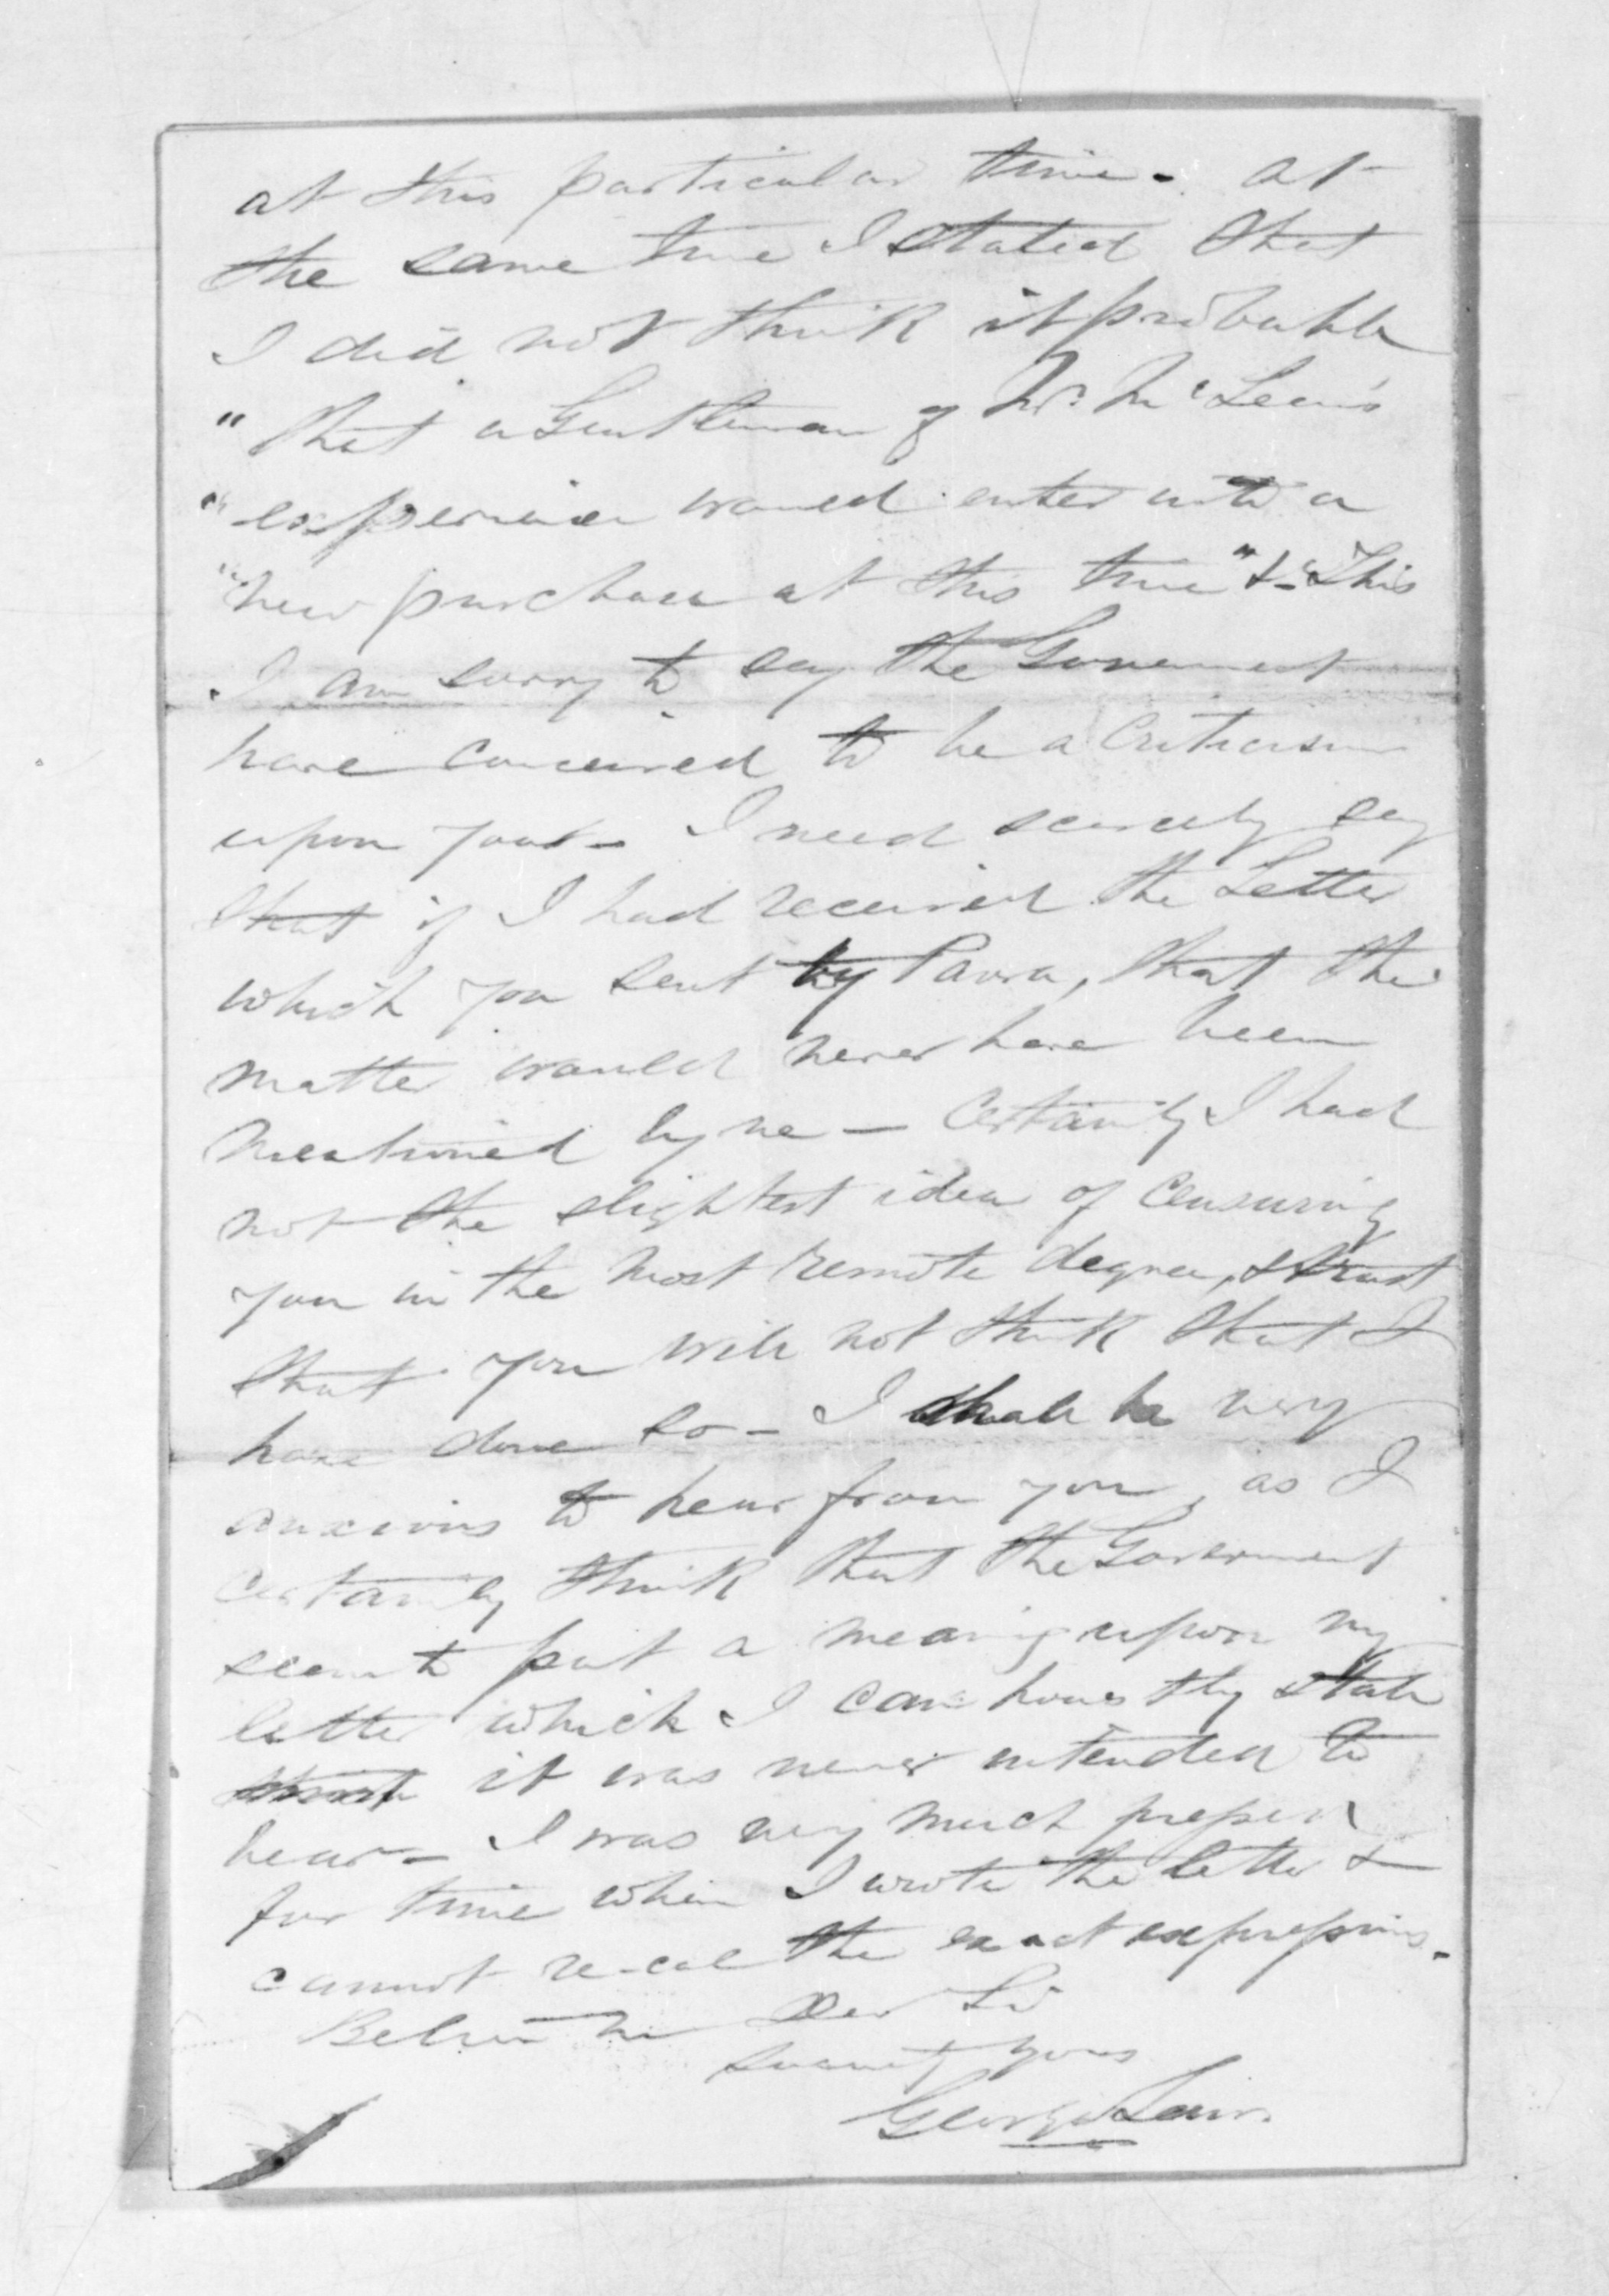 at this particular time - at
the same time I stated that
I did not think it probable
" that a Gentleman of Mr. McLean's
" experience would enter into a
" new purchase at this time" &c This
I am sorry to say the Goverment
have conceived to be a criticism
upon you - I need scarcely say
that if I had received the Letter
which you sent by Paora, that the
matter would never have been
mentioned by me — Certainly I had
not the slightest idea of censuring
you in the most remote degree, & trust
that you will not think that I
have done so - I shall be very
anxious to hear from you, as I
certainly think that the Goverment
seem to put a meaning upon my
letter which I can honestly state
it was never intended to
bear - I was very much pressed
for time when I wrote the letter &
cannot recal the exact expressions.
Believe me Dear Sir
yours
George